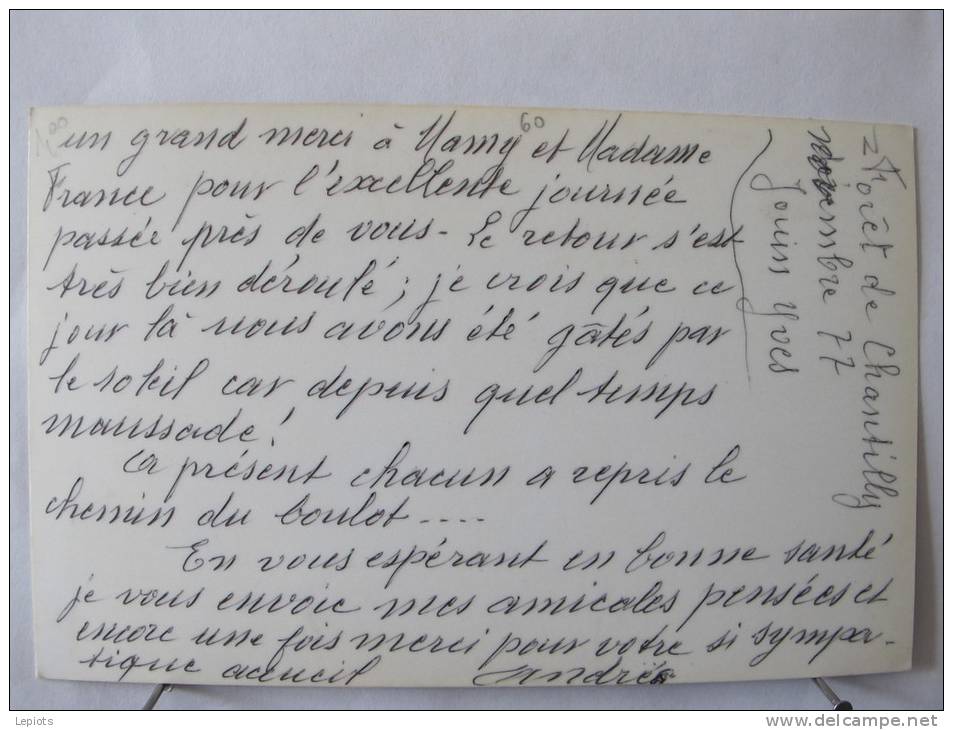 1,00
un grand merci à Mamy et Madame
60
France pour l'excellente journée
passée près de vous - Le retour s'est
très bien déroulé ; je crois que ce
jour là nous avons été gâtés par
le soleil car depuis quel temps
maussade !
A présent chacun a repris le
chemin du boulot ....
En vous espérant en bonne santé
je vous envoie mes amicales pensées et
encore une fois merci pour votre si sympa-
tique accueil Andrée
Forêt de Chantilly
novembre 77
Jouin Yves
Lepiots
www.delcampe.net